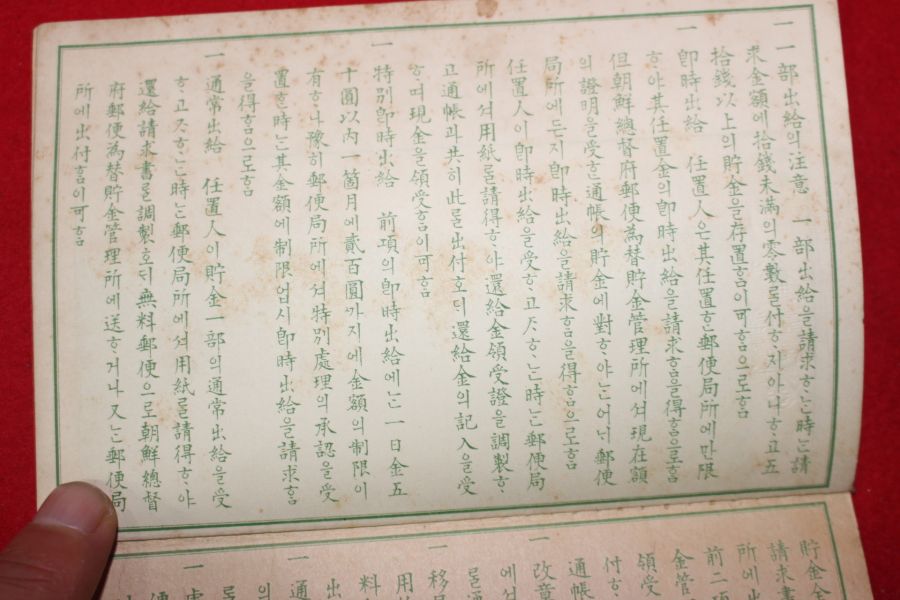 一 一部出給의注意 一部出給을請求ᄒᆞᄂᆞᆫ時ᄂᆞᆫ請
求金額에拾錢未滿의零數ᄅᆞᆯ付ᄒᆞ지아니ᄒᆞ고五
拾錢以上의貯金을存置ᄒᆞᆷ이可ᄒᆞᆷ으로ᄒᆞᆷ
一 卽時出給 任置人은其任置ᄒᆞᆫ郵便局所에만限
ᄒᆞ야其任置金의卽時出給을請求ᄒᆞᆷ을得ᄒᆞᆷ으로ᄒᆞᆷ
但朝鮮總督府郵便為替貯金管理所에셔現在額
의證明을受ᄒᆞᆫ通帳의貯金에對ᄒᆞ야ᄂᆞᆫ어ᄂᆞ郵便
局所에든지卽時出給을請求ᄒᆞᆷ을得ᄒᆞᆷ으로ᄒᆞᆷ
任置人이卽時出給을受ᄒᆞ고ᄌᆞᄒᆞᄂᆞᆫ時ᄂᆞᆫ郵便局
所에셔用紙ᄅᆞᆯ請得ᄒᆞ야還給金領受證을調製ᄒᆞ
고通帳과共히此ᄅᆞᆯ出付ᄒᆞ되還給金의記入을受
ᄒᆞ며現金을領受ᄒᆞᆷ이可ᄒᆞᆷ
一 特別卽時出給 前項의卽時出給에ᄂᆞᆫ一日金五
十圓以內一箇月에貳百圓ᄭᆞ지에金額의制限이
有ᄒᆞ나豫히郵便局所에셔特別處理의承認을受
置ᄒᆞᆫ時ᄂᆞᆫ其金額에制限업시卽時出給을請求ᄒᆞᆷ
을得ᄒᆞᆷ으로ᄒᆞᆷ
一 通常出給 任置人이貯金一部의通常出給을受
ᄒᆞ고ᄌᆞᄒᆞᄂᆞᆫ時ᄂᆞᆫ郵便局所에셔用紙ᄅᆞᆯ請得ᄒᆞ야
還給請求書ᄅᆞᆯ調製ᄒᆞ되無料郵便으로朝鮮總督
府郵便為替貯金管理所에送ᄒᆞ거나又ᄂᆞᆫ郵便局
所에出付ᄒᆞᆷ이可ᄒᆞᆷ
貯金
請求書
所에出
前二項
金管
領受
付ᄒᆞ
通帳
一 改
에셔
ᄅᆞᆯ通
一 移
用
料
出
一 通
의